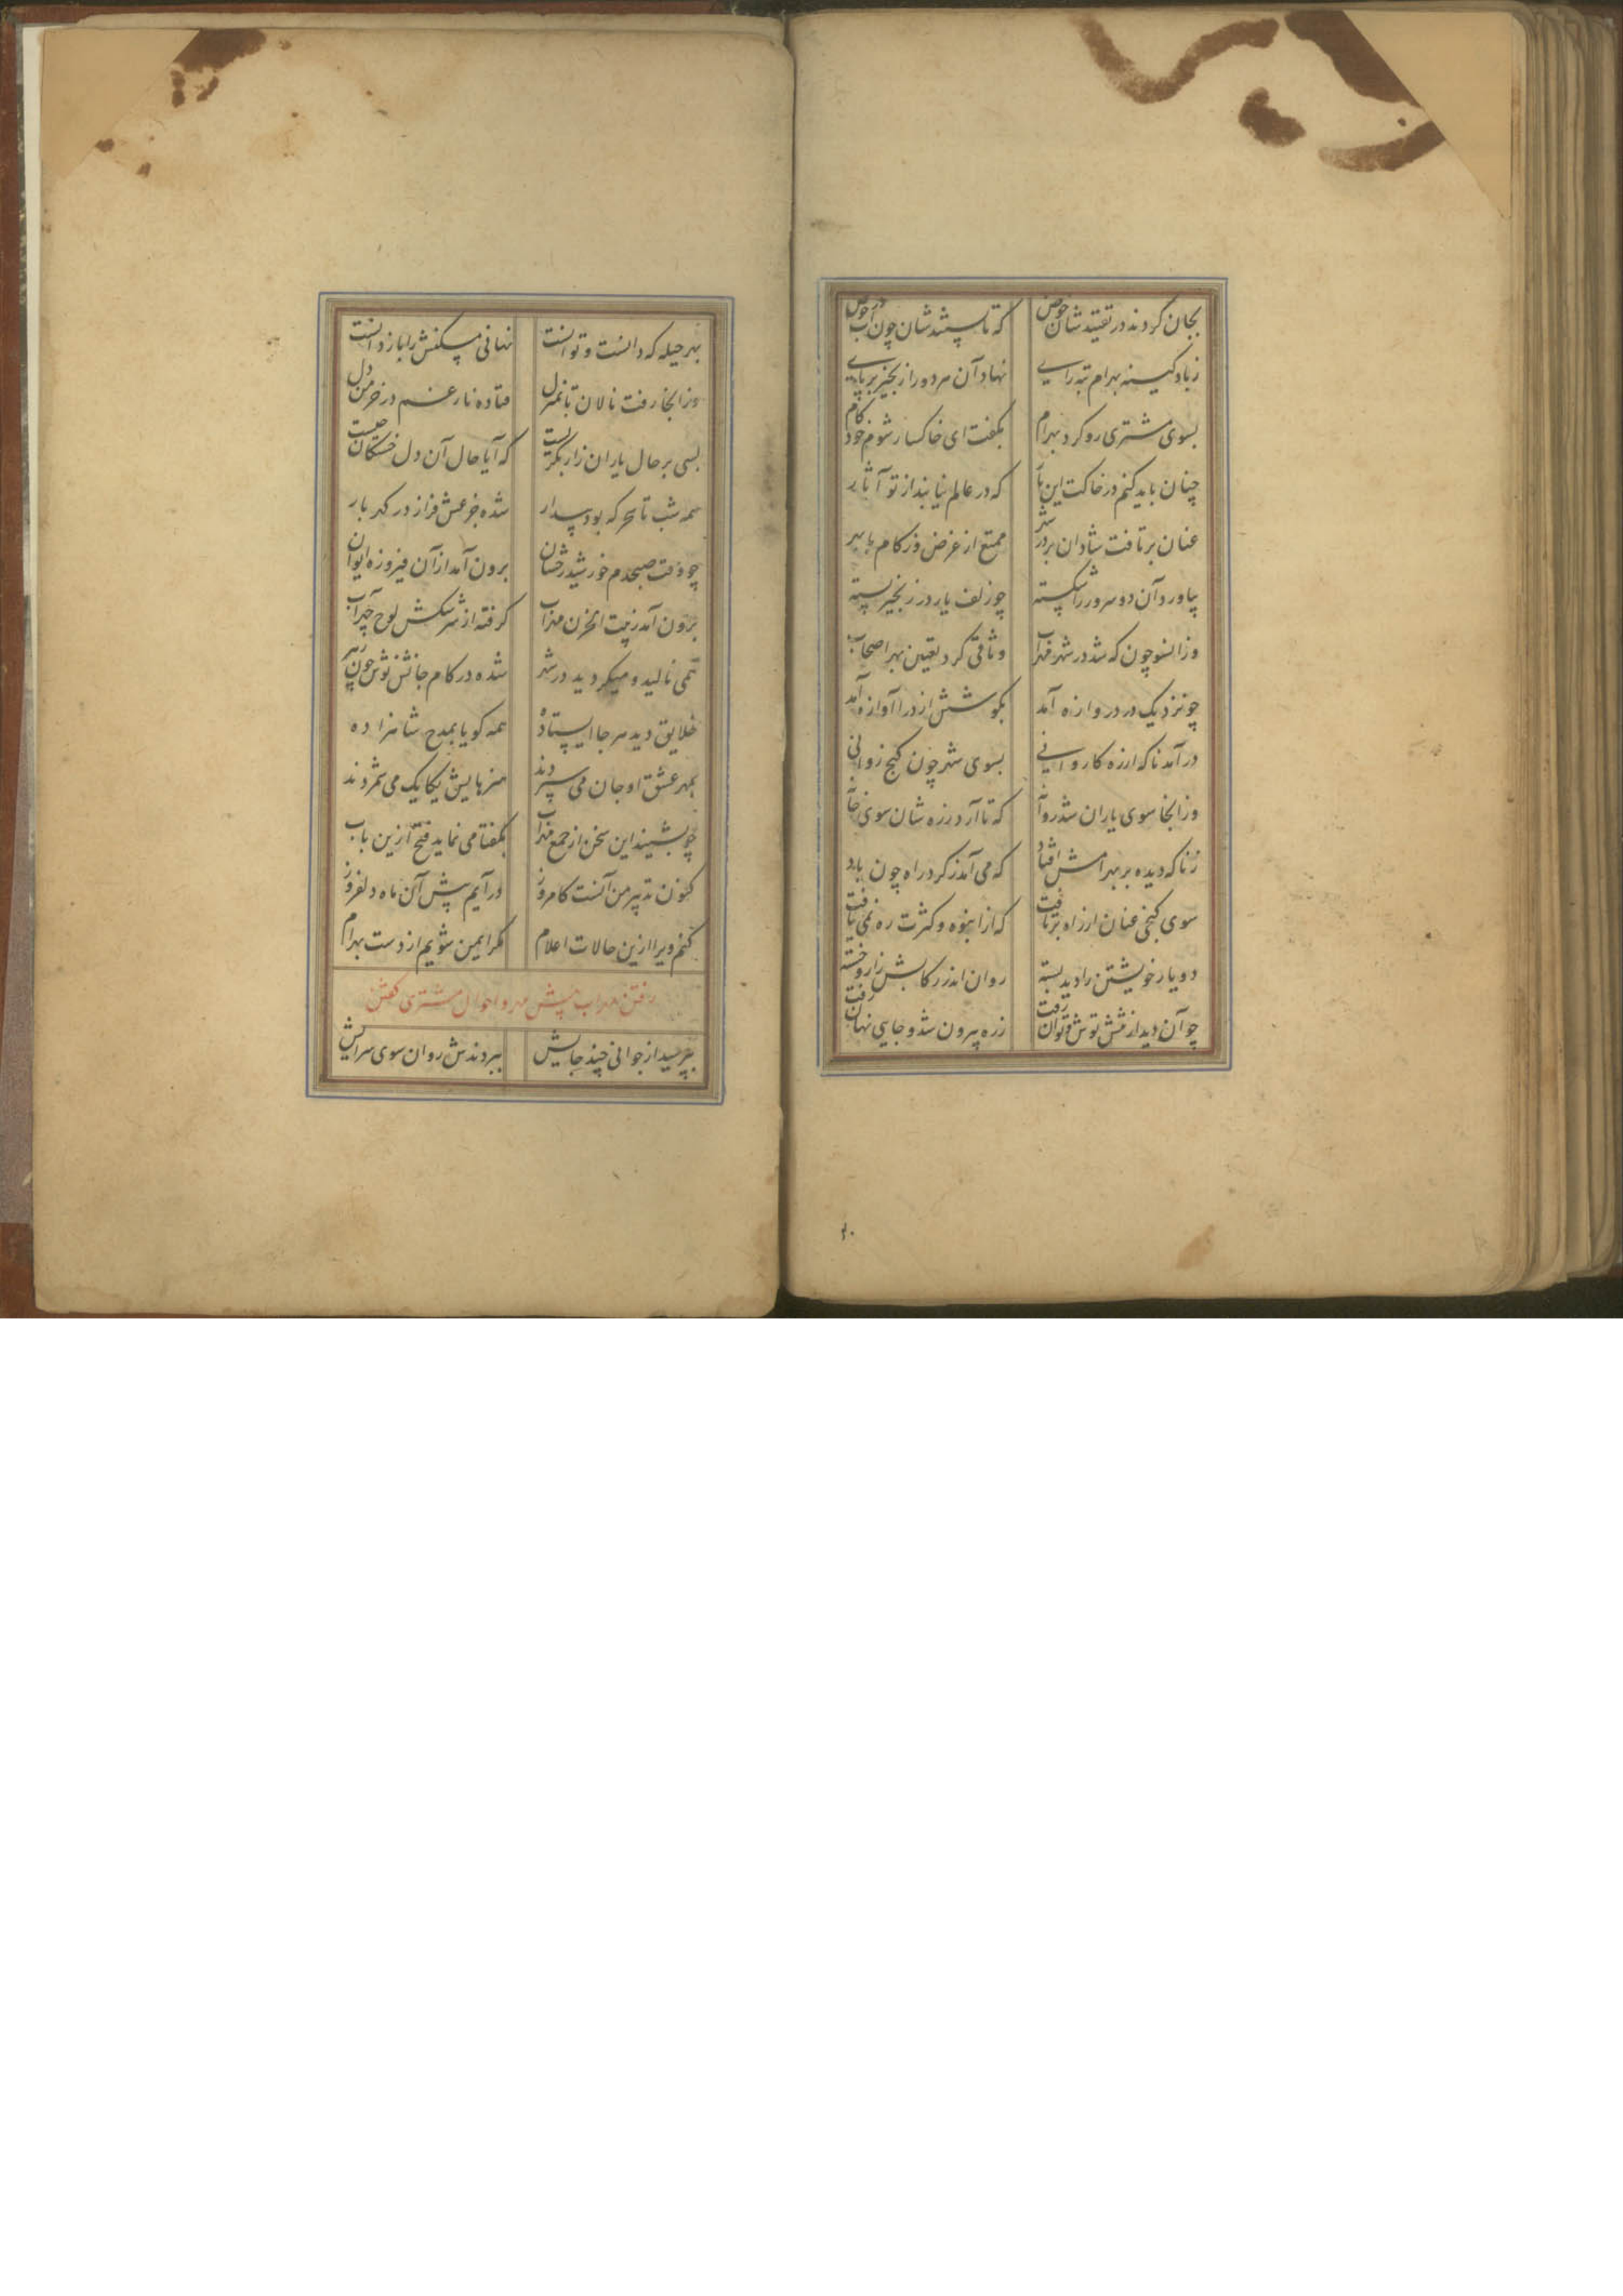 بجان کردند در تفتیدشان خوض که تا بستندشان چون آب در حوض
زباد کینه بهرام تبه رایی نهاد آن هر دو را زنجیر بر پایی
بسوی مشتری رو کرد بهرام بگفت ای خاکسار شوم خود کام
چنان باید کنم در خاکت این بار که در عالم نیابند از تو آثار
عنان برتافت شادان بر در شهر ممتع از غرض وز کام با بهر
بیاورد آن دو سرور را شکسته چو زلف یار در زنجیر بسته
وزانسو چون که شد در شهر مهراب وثاقی کرد تعیین بهر اصحاب
چو نزدیک در دروازه آمد بگوشش از درا آوازه آمد
درآمد ناگه از ره کاروانی بسوی شهر چون گنج روانی
وز انجا سوی یاران شد روان که تا آرد ز ره شان سوی خان
ز ناگه دیده بر بهرامش افتاد که می آمد ز گرد راه چون باد
سوی کنجی عنان از راه برتافت که از انبوه و کثرت ره نمی یافت
دو یار خویشتن را دید بسته روان اندر رکابش زار و خسته
چو آن دید از تنش توش و توان رفت ز ره بیرون شد و جایی نهان رفت
۲۰
بهر حیله که دانست و توانست نهانی مسکنش را باز دانست
وز انجا رفت نالان تا بمنزل فتاده نار غم در خرمن دل
بسی بر حال یاران زار بگریست که آیا حال آن دل خستگان چیست
همه شب تا سحر که بود بیدار شده جزعش فراز در گهر بار
چو وقت صبحدم خورشید رخشان برون آمد از آن فیروزه ایوان
برون آمد ز بیت الحزن مهراب گرفته از سرشکش لوح چهر آب
همی نالید و میگردید در شهر شده در کام جانش نوش چون زهر
خلایق دید هر جا ایستاده همه گویا بمدح شاهزاده
بمهر عشق او جان می سپردند هنرهایش یکایک می شمردند
چو بشنید این سخن از جمع مهراب بگفتا می نماید فتح ازین باب
کنون تدبیر من آنست کامروز درآیم پیش آن ماه دلفروز
کنم ویرا ازین حالات اعلام مگر ایمن شویم از دست بهرام
رفتن مهراب پیش مهر و احوال مشتری گفتن
بپرسید از جوانی چند جایش ببردندش روان سوی سرایش